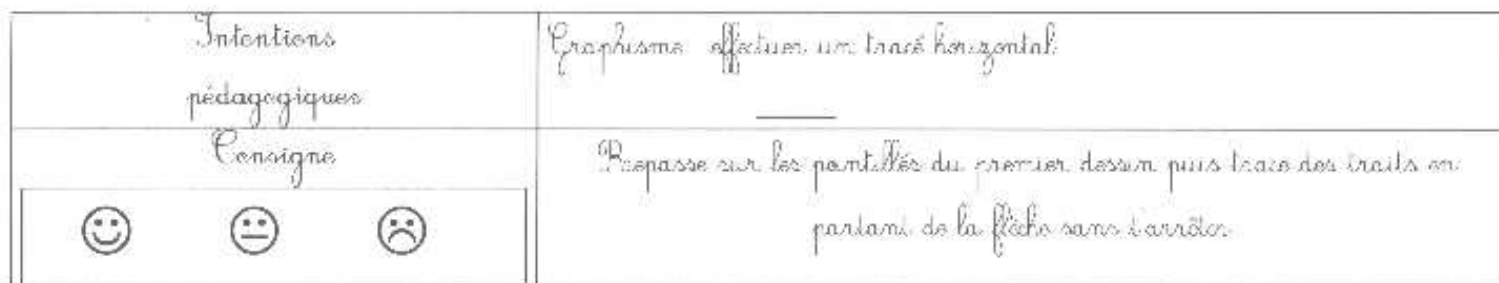 Intentions
pédagogiques
Graphisme effectuer un tracé horizontal
Consigne
Repasse sur les pointillés du premier dessin puis trace des traits en
partant de la flèche sans t'arrêter